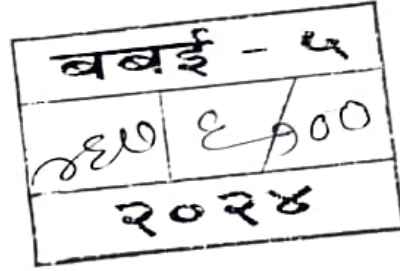 बबई - ५
६/१००
२०२४